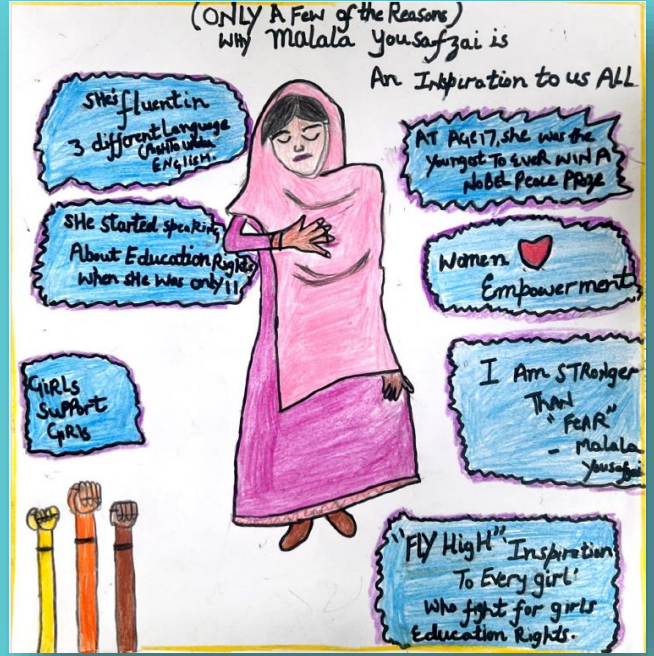 (ONLY A Few of the Reasons)
WHY Malala Yousafzai is
An Inspiration to us ALL
SHe's fluent in
3 different Language
ENGLISH.
SHe started speaking
About Education Rights
when sHe was only 11
GiRLs
SuPPort
GiRls
AT AGe 17, she was the
Youngest To EVER WIN A
NoBel Peace PRize
Women
Empowerment
I Am STRonger
THAN
"FeAR"
- Malala
Yousafzai
"FLY HigH" Inspiration
To Every girl'
who fight for girls
Education Rights.